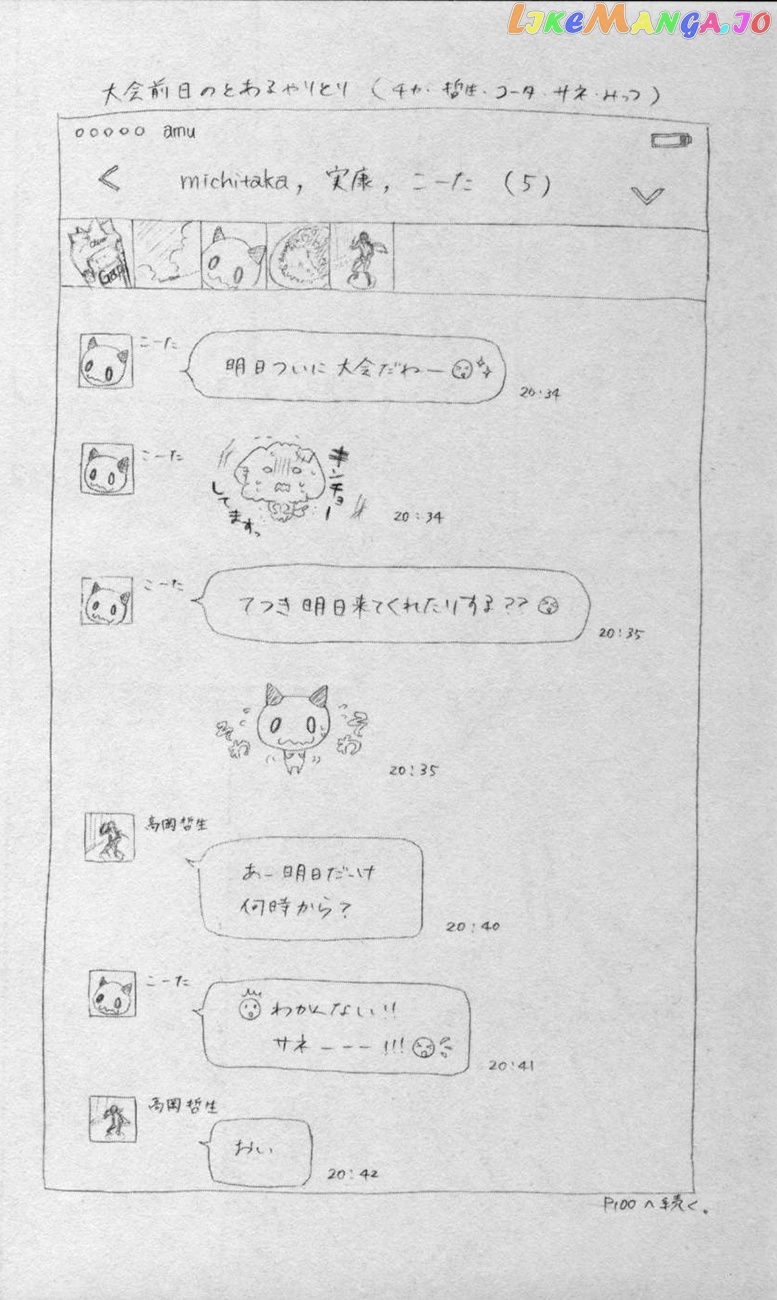 LIKEMANGA.IO
大会前日のとあるやりとり（チカ・哲生・コータ・サネ・みっつ）
ooooo amu
michitaka, 実康, こーた (5)
Gap
こーた
明日ついに大会だねー
20:34
こーた
キンチョー
してますっ
20:34
こーた
てつき明日来てくれたりする??
20:35
そわ
そわ
20:35
高岡哲生
あー明日だっけ
何時から?
20:40
こーた
わかんない!!
サネーーー!!!
20:41
高岡哲生
おい
20:42
P100へ続く。